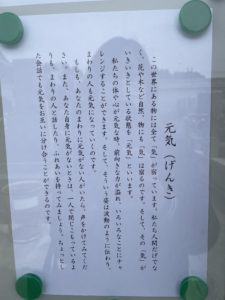 元気（げんき）
この世界にある物には全て「気」が宿っています。私たち人間だけでな
く、花や木など自然、物にも「気」は宿るのです。そして、その「気」が
いきいきとしている状態を「元気」といいます。
私たちの体や心が元気な時、前向きな力が溢れ、いろいろなことにチャ
レンジすることができます。そして、そういう姿は波動のように伝わり、
まわりの人も元気になっていくのです。
もしも、あなたのまわりに元気がない人がいたら、声をかけてみてくだ
さい。また、あなた自身に元気がないときは、一人で閉じこもっているよ
りも、まわりの人と話したり、ふれあいを持ってみましょう。ちょっとし
た会話でも元気をお互いに分け合うことができるのです。